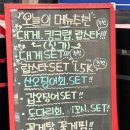 오늘의 메뉴추천
대게, 킹크랩, 랍스타!!!
(싯가)
대게 SET!!!
랍스타 SET 1.5K
산오징어회 SET!!
갑오징어 SET!!
도다리회, 1kg SET!!
꽃게탕